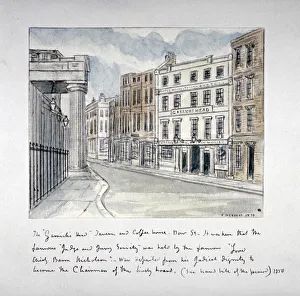 GARRICKS HEAD
The "Garrick's Head" Tavern and Coffee house - Bow St. It was here that the
famous "Judge and Jury Society" was held by the famous "Lord
Chief Baron Nicholson" - who departed from his Judicial Dignity to
become the Chairman of the lively board. (Two hand bills of the period) 1858